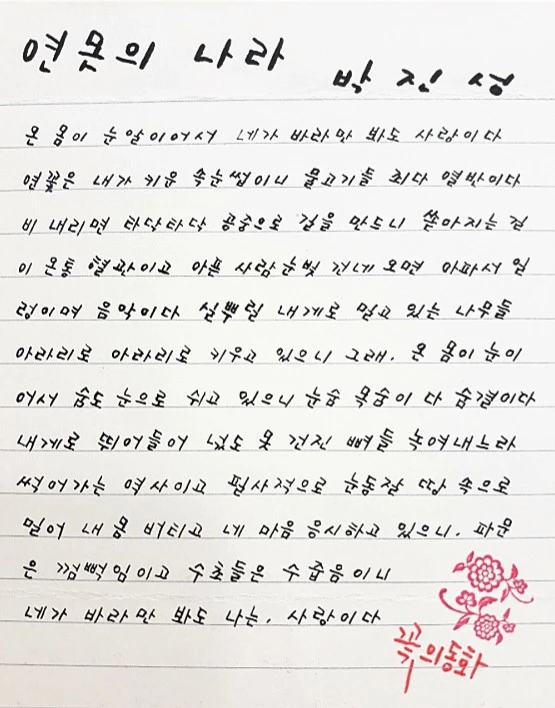 연못의 나라
박 진 성
온 몸이 눈알이어서 네가 바라만 봐도 사랑이다
연꽃은 내가 키운 속눈썹이니 물고기들 죄다 결박이다
비 내리면 타닥타닥 공중으로 길을 만드니 쏟아지는 것
이 온통 혈관이고 아픈 사람 눈빛 건네 오면 아파서 일
렁이며 음악이다 실뿌릴 내게로 밀고 있는 나무들
아라리로 아라리로 키우고 있으니 그래, 온 몸이 눈이
어서 숨도 눈으로 쉬고 있으니 눈숨 목숨이 다 숨결이다
내게로 뛰어들어 넋도 못 건진 뼈들 녹여내느라
썩어가는 역사이고 필사적으로 눈동잘 땅 속으로
밀어 내 몸 버티고 네 마음 응시하고 있으니, 파문
은 깜빡임이고 수초들은 수줍음이니
네가 바라만 봐도 나는, 사랑이다
꼭의동화